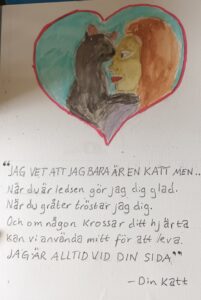 "JAG VET ATT JAG BARA ÄR EN KATT MEN..
När du är ledsen gör jag dig glad.
När du gråter tröstar jag dig.
Och om någon krossar ditt hjärta
kan vi använda mitt för att leva.
JAG ÄR ALLTID VID DIN SIDA"
- Din Katt